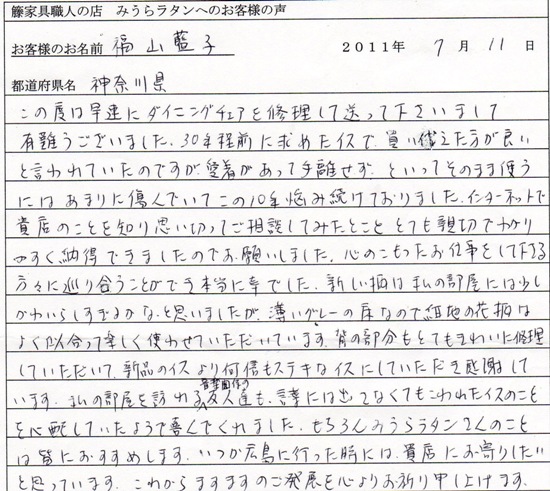 籐家具職人の店 みうらラタンへのお客様の声
お客様のお名前 福山藍子 2011年 7月 11日
都道府県名 神奈川県
この度は早速にダイニングチェアを修理して送って下さいまして
有難うございました。30年程前に求めたイスで、買い替えた方が良い
と言われていたのですが愛着があって手離せず、といってそのまま使う
にはあまりに傷んでいてこの10年悩み続けておりました。インターネットで
貴店のことを知り思い切ってご相談してみたところ とても親切でわかり
やすく納得できましたのでお願いしました。心のこもったお仕事をして下さる
方々に巡り合うことができ本当に幸でした。新しい柄は私の部屋には少し
かわいらしすぎるかなと思いましたが、薄いグレーの床なので紺地の花柄は
よく似合って楽しく使わせていただいています。背の部分もとてもきれいに修理
していただいて、新品のイスより何倍もステキなイスにしていただき感謝して
います。私の部屋を訪れる音楽関係の友人達も、言葉には出さなくてもこわれたイスのこと
を心配していたようで喜んでくれました。もちろんみうらラタンさんのこと
は皆におすすめします。いつか広島に行った時には、貴店にお寄りしたい
と思っています。これからますますのご発展を心よりお祈り申し上げます。